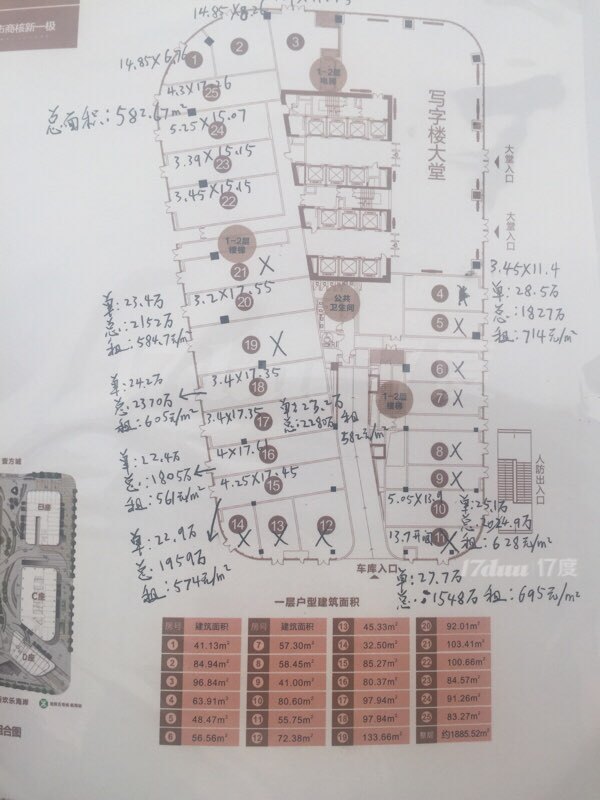 市商核新一极
14.85×8.26
14.85×6.76
1
2
3
1~2层
电梯
4.3×17.26
25
总面积:582.67m²
5.25×15.07
24
3.39×15.15
23
3.45×15.15
22
写字楼大堂
大堂入口
大堂入口
1~2层
楼梯
21 X
3.2×17.55
20
公共
卫生间
3.45×11.4
4
单:28.5万
总:1827万
租:714元/m²
5 X
单:23.4万
总:2152万
租:584.7元/m²
19 X
6 X
7 X
1~2层
楼梯
单:24.2万
总:2370万
租:605元/m²
3.4×17.35
18
3.4×17.35
17
单:23.2万
总:2280万
租
582元/m²
单:22.4万
总:1805万
租:561元/m²
4×17.61
16
4.25×17.45
15
8 X
9 X
人防出入口
5.05×13.9
10
单:25.1万
租:628元/m²
单:22.9万
总:1959万
租:574元/m²
14 X
13 X
12 X
13.7开间
11
车库入口
17duu 17度
单:27.7万
总:1548万 租:695元/m²
壹方城
B座
C座
D座
欢乐海岸
一层户型建筑面积
房号 建筑面积 房号 建筑面积 13 45.33m² 20 92.01m²
1 41.13m² 7 57.30m² 14 32.50m² 21 103.41m²
2 84.94m² 8 58.45m² 15 85.27m² 22 100.66m²
3 96.84m² 9 41.00m² 16 80.37m² 23 84.57m²
4 63.91m² 10 80.60m² 17 97.94m² 24 91.26m²
5 48.47m² 11 55.75m² 18 97.94m² 25 83.27m²
6 56.56m² 12 72.38m² 19 133.66m² 整层 约1885.52m²
组合图